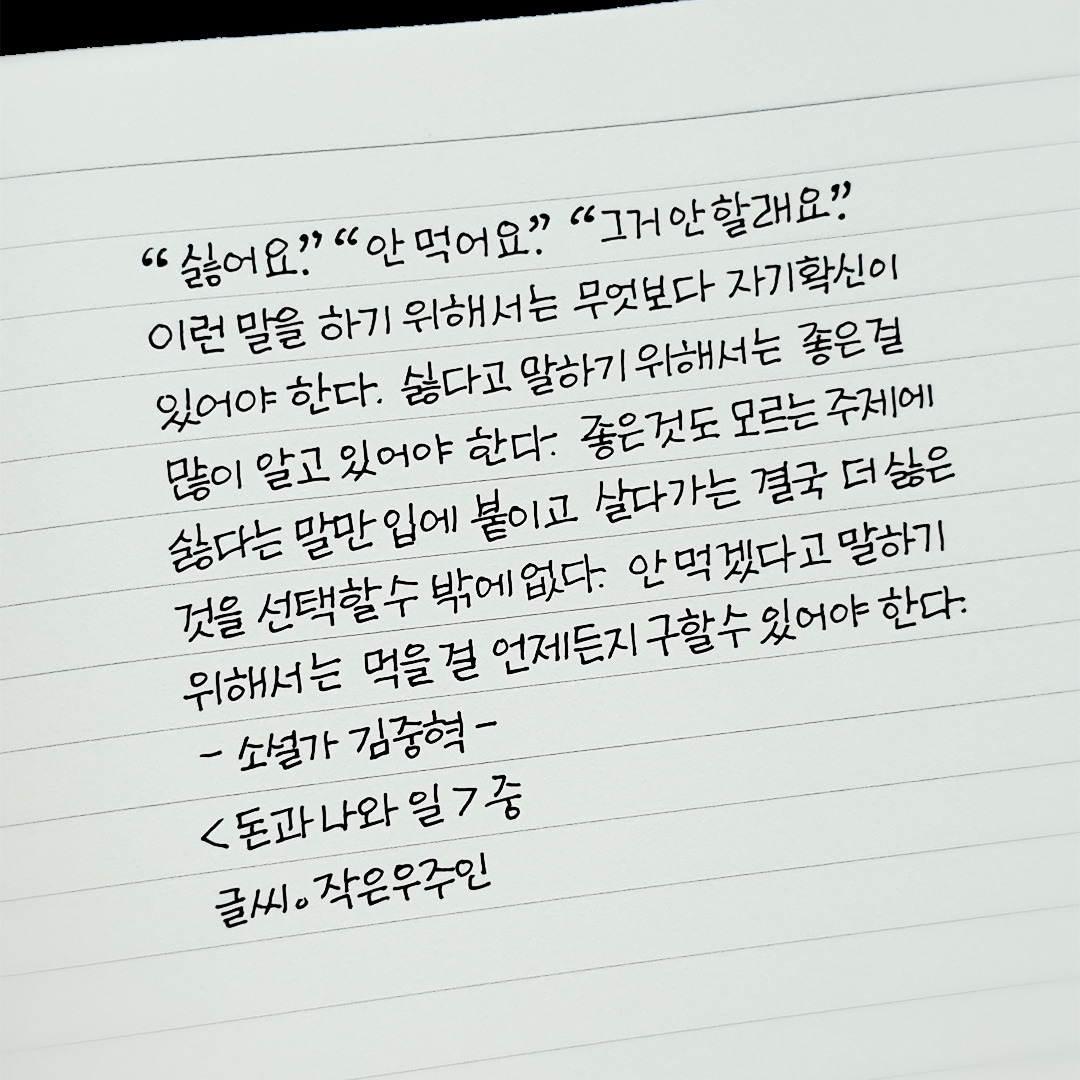 “싫어요.” “안 먹어요.” “그거 안 할래요.”
이런 말을 하기 위해서는 무엇보다 자기확신이
있어야 한다. 싫다고 말하기 위해서는 좋은 걸
많이 알고 있어야 한다. 좋은것도 모르는 주제에
싫다는 말만 입에 붙이고 살다가는 결국 더 싫은
것을 선택할 수 밖에 없다. 안 먹겠다고 말하기
위해서는 먹을 걸 언제든지 구할 수 있어야 한다.
- 소설가 김중혁 -
<돈과 나와 일> 중
글씨。작은우주인